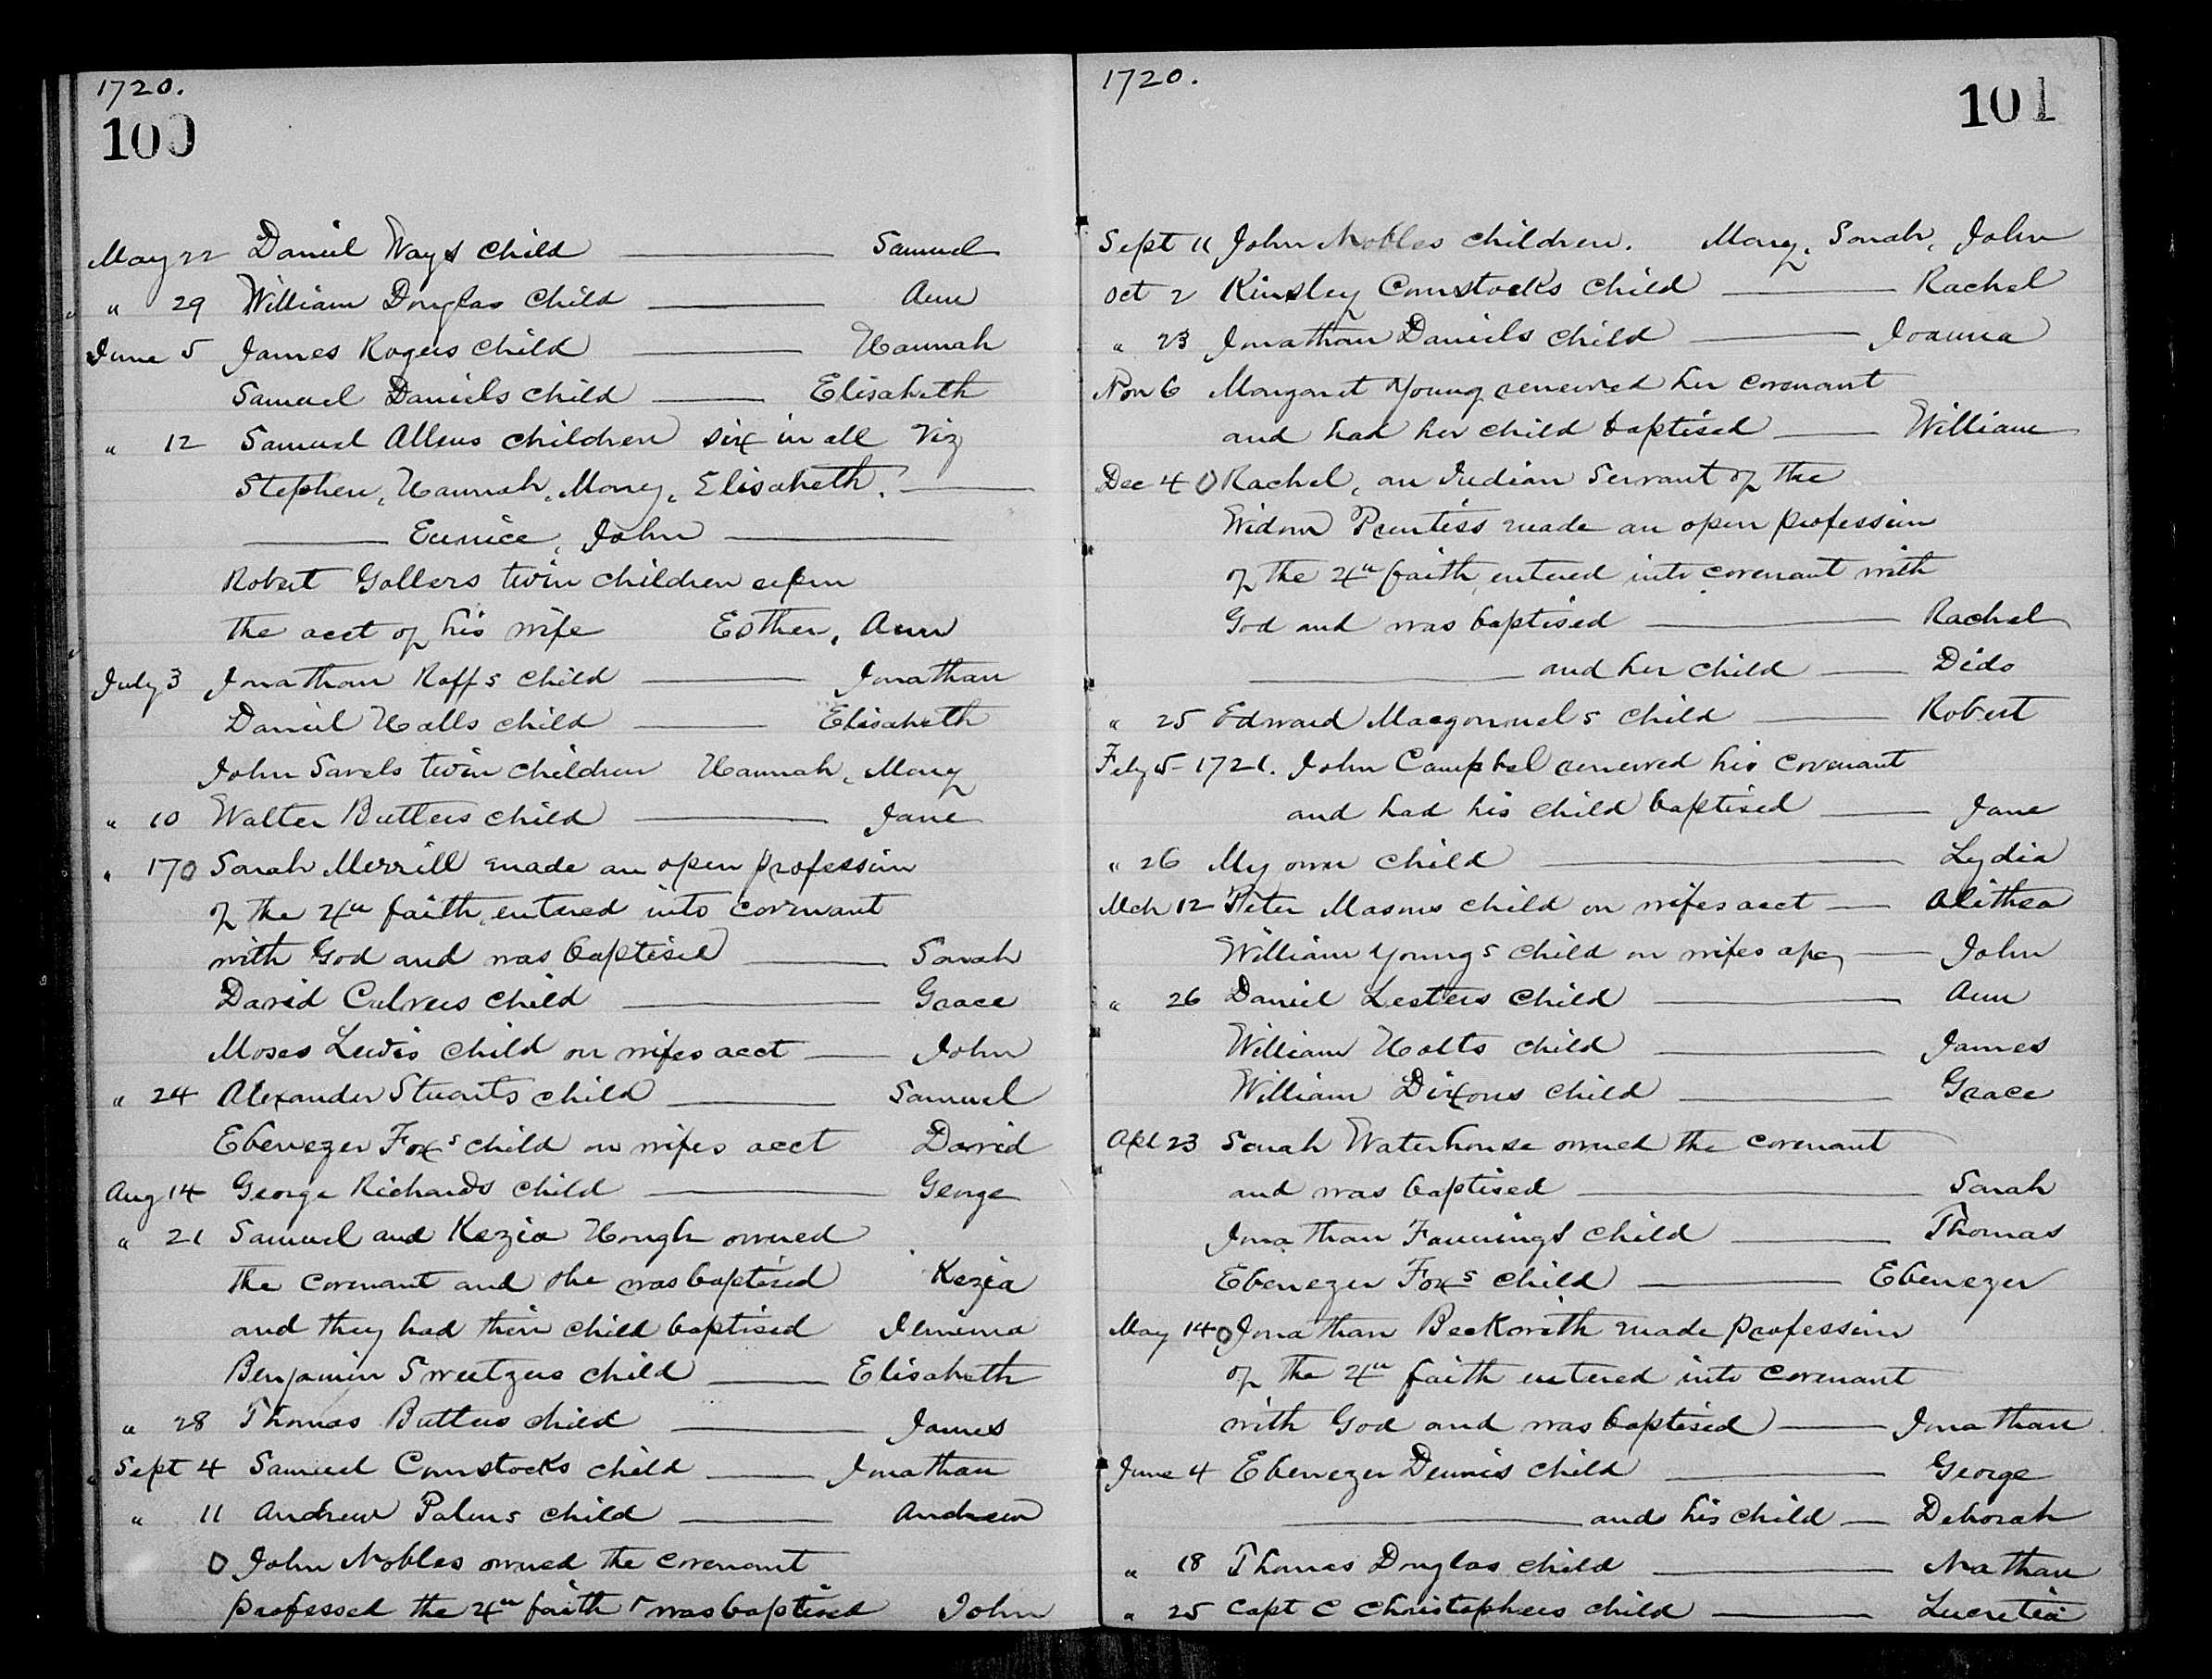 1720.
100
May 22 Daniel Ways child Samuel
" 29 William Douglas child Ann
June 5 James Rogers child Hannah
Samuel Daniels child Elisabeth
" 12 Samuel Allens children six in all Viz
Stephen, Hannah, Mary, Elisabeth,
Eunice, John
Robert Gallers twin children upon
the acct of his wife Esther, Ann
July 3 Jonathan Roffs child Jonathan
Daniel Halls child Elisabeth
John Savels twin children Hannah, Mary
" 10 Walter Butlers child Jane
" 17 O Sarah Merrill made an open profession
of the Xn faith, entered into covenant
with God and was baptised Sarah
David Culvers child Grace
Moses Lewis child on wifes acct John
" 24 Alexander Stuarts child Samuel
Ebenezer Foxs child on wifes acct David
Aug 14 George Richards child George
" 21 Samuel and Kezia Hough owned
the covenant and she was baptised Kezia
and they had their child baptised Jemima
Benjamin Sweetzers child Elisabeth
" 28 Thomas Butlers child James
Sept 4 Samuel Comstocks child Jonathan
" 11 Andrew Palms child Andrew
O John Nobles owned the covenant
professed the Xn faith & was baptised John
1720.
101
Sept 11 John Nobles children. Mary, Sarah, John
Oct 2 Kinsley Comstocks child Rachel
" 23 Jonathan Daniels child Joanna
Nov 6 Margaret Young renewed her covenant
and had her child baptised William
Dec 4 O Rachel, an Indian Servant of the
Widow Prentiss made an open profession
of the Xn faith, entered into covenant with
God and was baptised Rachel
and her child Dido
" 25 Edward Macgonnels child Robert
Feby 5 1721. John Campbel renewed his covenant
and had his child baptised Jane
" 26 My own child Lydia
Mch 12 Peter Masons child on wifes acct Alithea
William Youngs child on wifes John
" 26 Daniel Lesters child Ann
William Holts child James
William Dixons child Grace
Apl 23 Sarah Waterhouse owned the covenant
and was baptised Sarah
Jonathan Fannings child Thomas
Ebenezer Foxs child Ebenezer
May 14 O Jonathan Beckwith made profession
of the Xn faith entered into covenant
with God and was baptised Jonathan
June 4 Ebenezer Dennis child George
and his child Deborah
" 18 Thomas Douglas child Nathan
" 25 Capt C Christophers child Lucretia